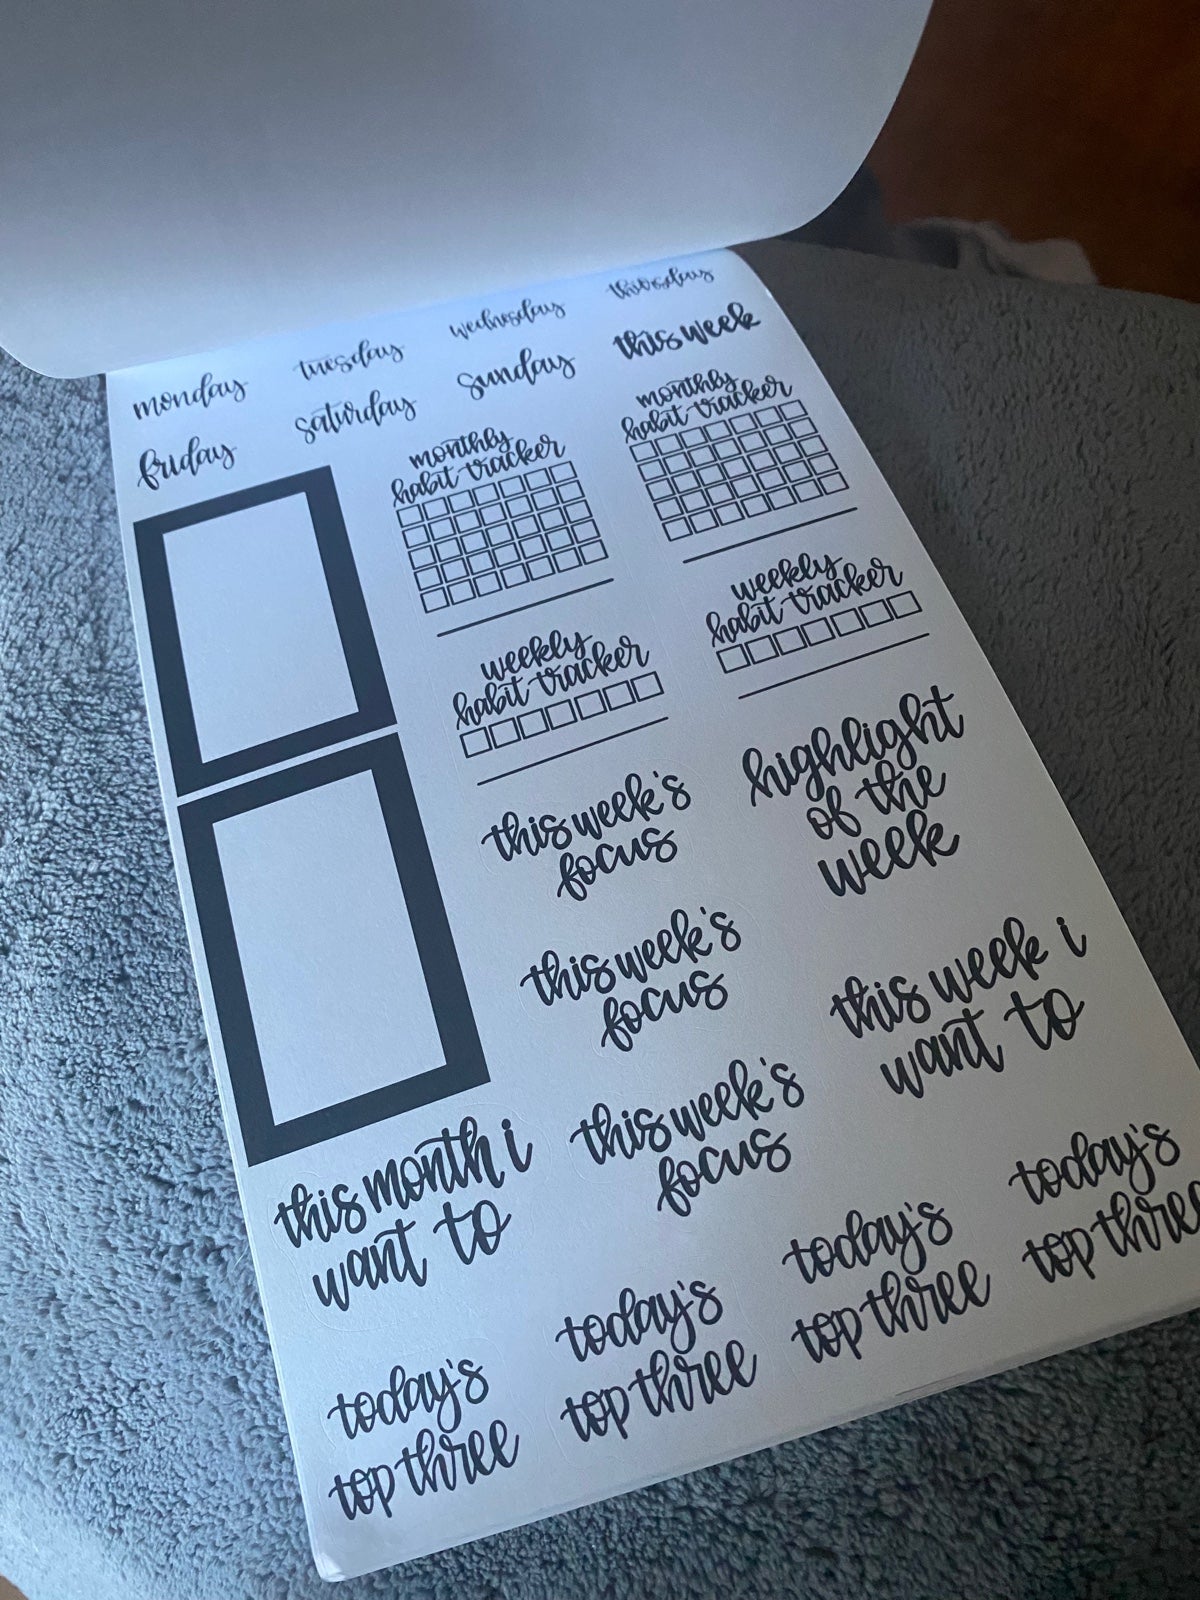 monday
tuesday
wednesday
thursday
friday
saturday
sunday
this week
monthly
habit tracker
monthly
habit tracker
weekly
habit tracker
weekly
habit tracker
this week's
focus
highlight
of the
week
this week's
focus
this week i
want to
this week's
focus
this month i
want to
today's
top three
today's
top three
today's
top three
today's
top three